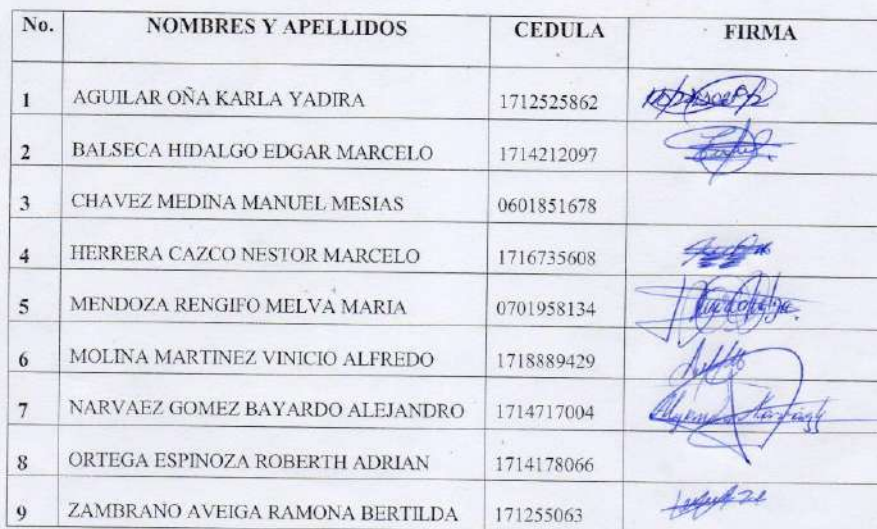 No. NOMBRES Y APELLIDOS CEDULA FIRMA
1 AGUILAR OÑA KARLA YADIRA 1712525862
2 BALSECA HIDALGO EDGAR MARCELO 1714212097
3 CHAVEZ MEDINA MANUEL MESIAS 0601851678
4 HERRERA CAZCO NESTOR MARCELO 1716735608
5 MENDOZA RENGIFO MELVA MARIA 0701958134
6 MOLINA MARTINEZ VINICIO ALFREDO 1718889429
7 NARVAEZ GOMEZ BAYARDO ALEJANDRO 1714717004
8 ORTEGA ESPINOZA ROBERTH ADRIAN 1714178066
9 ZAMBRANO AVEIGA RAMONA BERTILDA 171255063